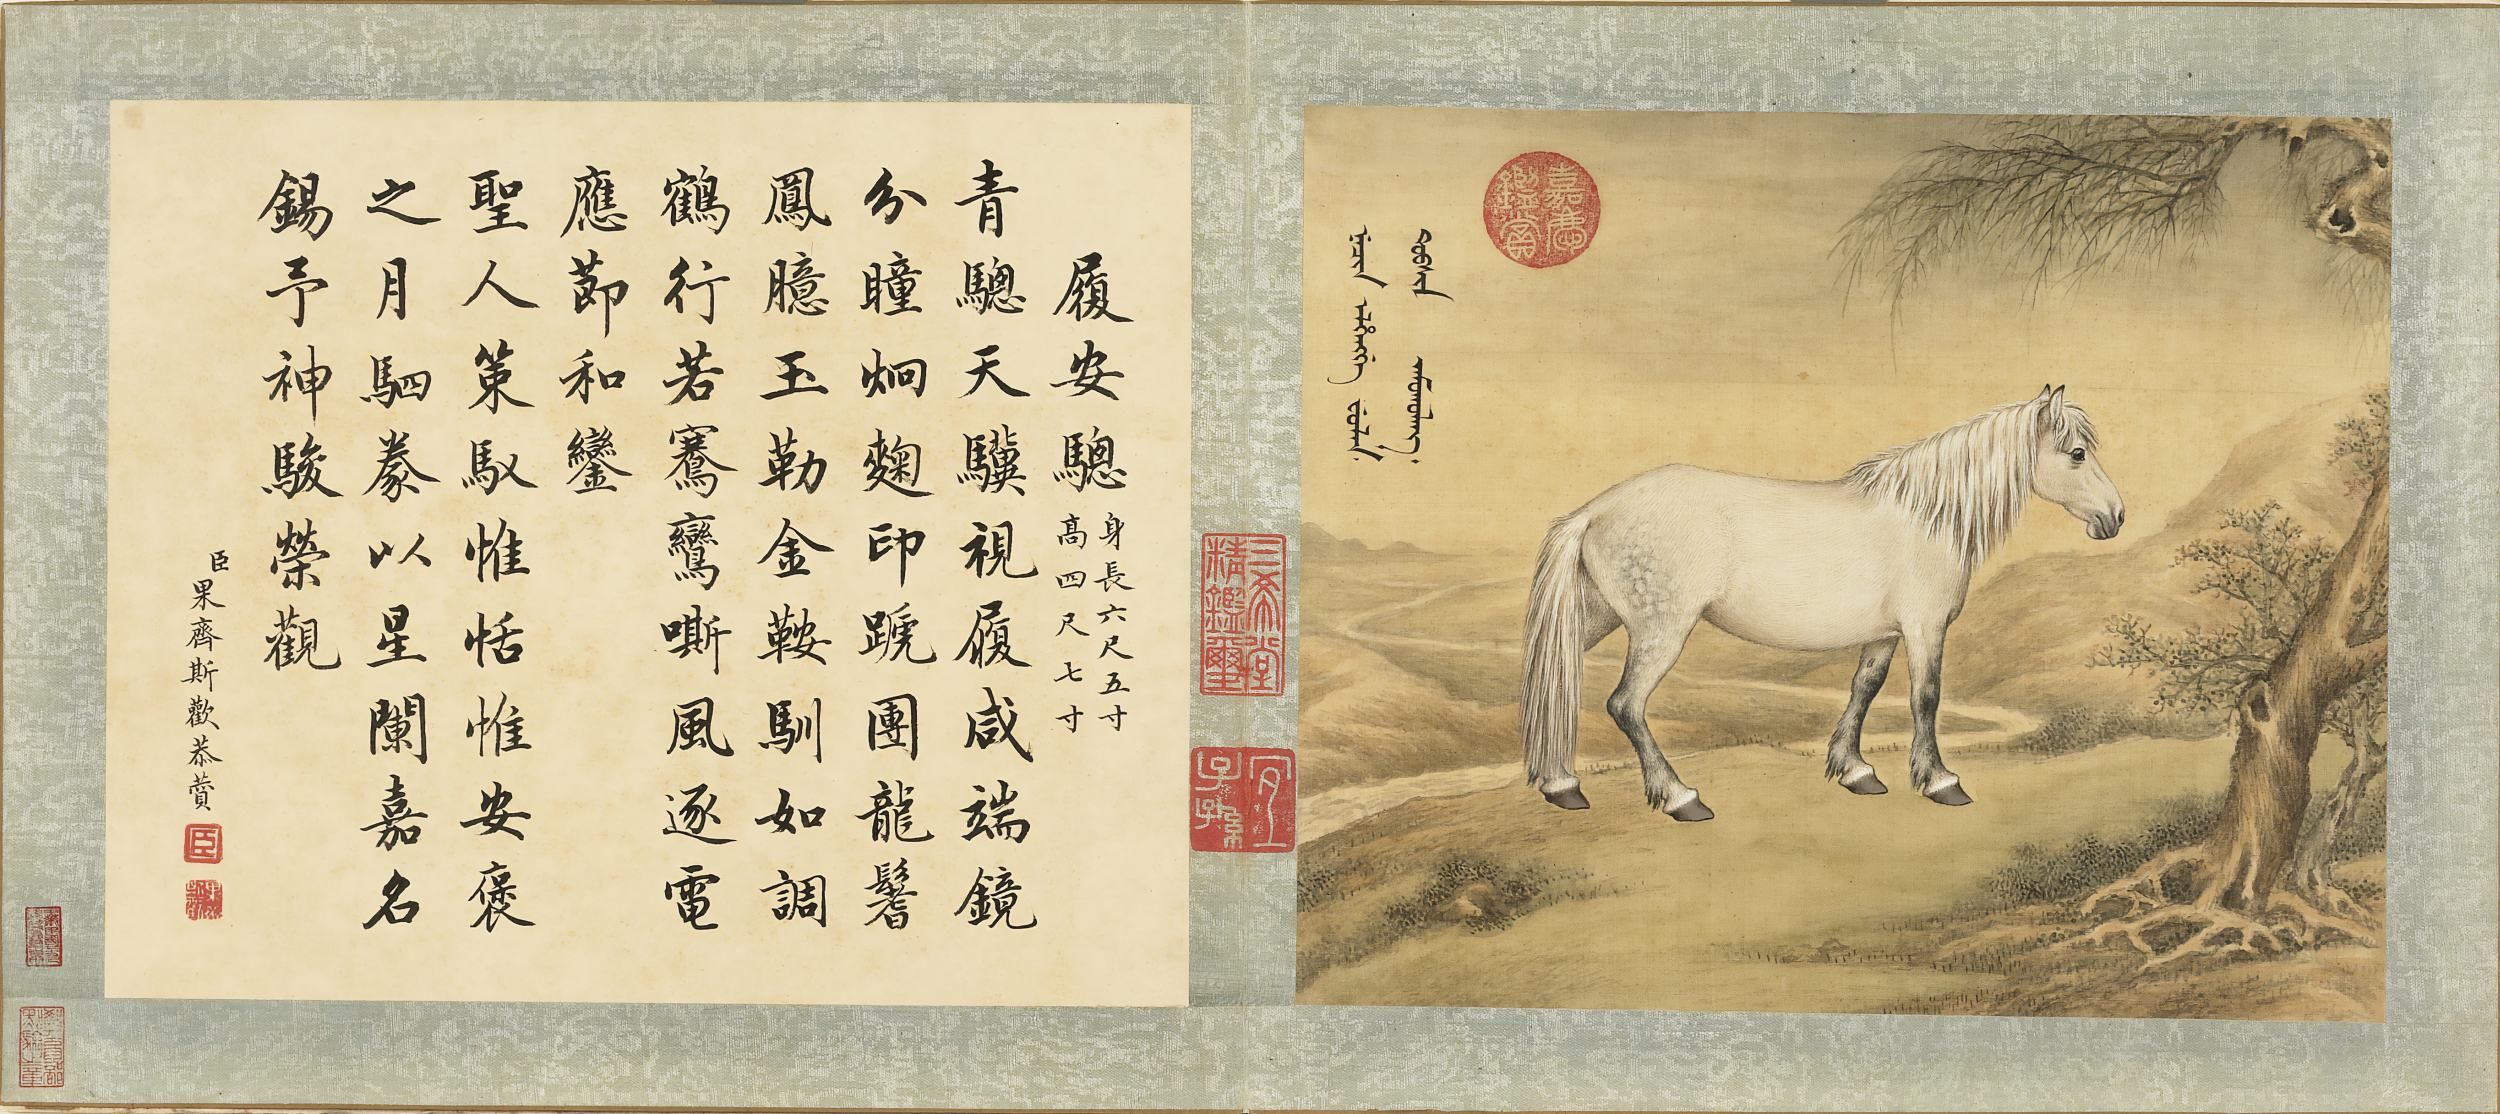 嘉慶鑑賞
三希堂精鑑璽
宜子孫
履安驄 身長六尺五寸
高四尺七寸
青驄天驥視履咸端鏡
分瞳炯麴印蹏團龍鬐
鳳臆玉勒金鞍馴如調
鶴行若騫鸞嘶風逐電
應節和鑾
聖人策馭惟恬惟安褒
之月駟豢以星闌嘉名
錫予神駿榮觀
臣果齊斯歡恭贊
臣